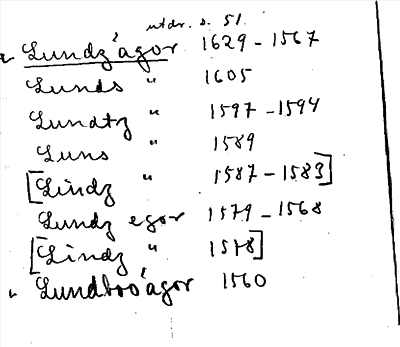 utdr. s. 51.
" Lundz'ågor 1629-1567
Lunds " 1605
Lundtz " 1597-1594
Luns " 1589
[Lindz " 1587-1583]
Lundz egor 1579-1568
[Lindz " 1578]
" Lundboo'ågor 1560